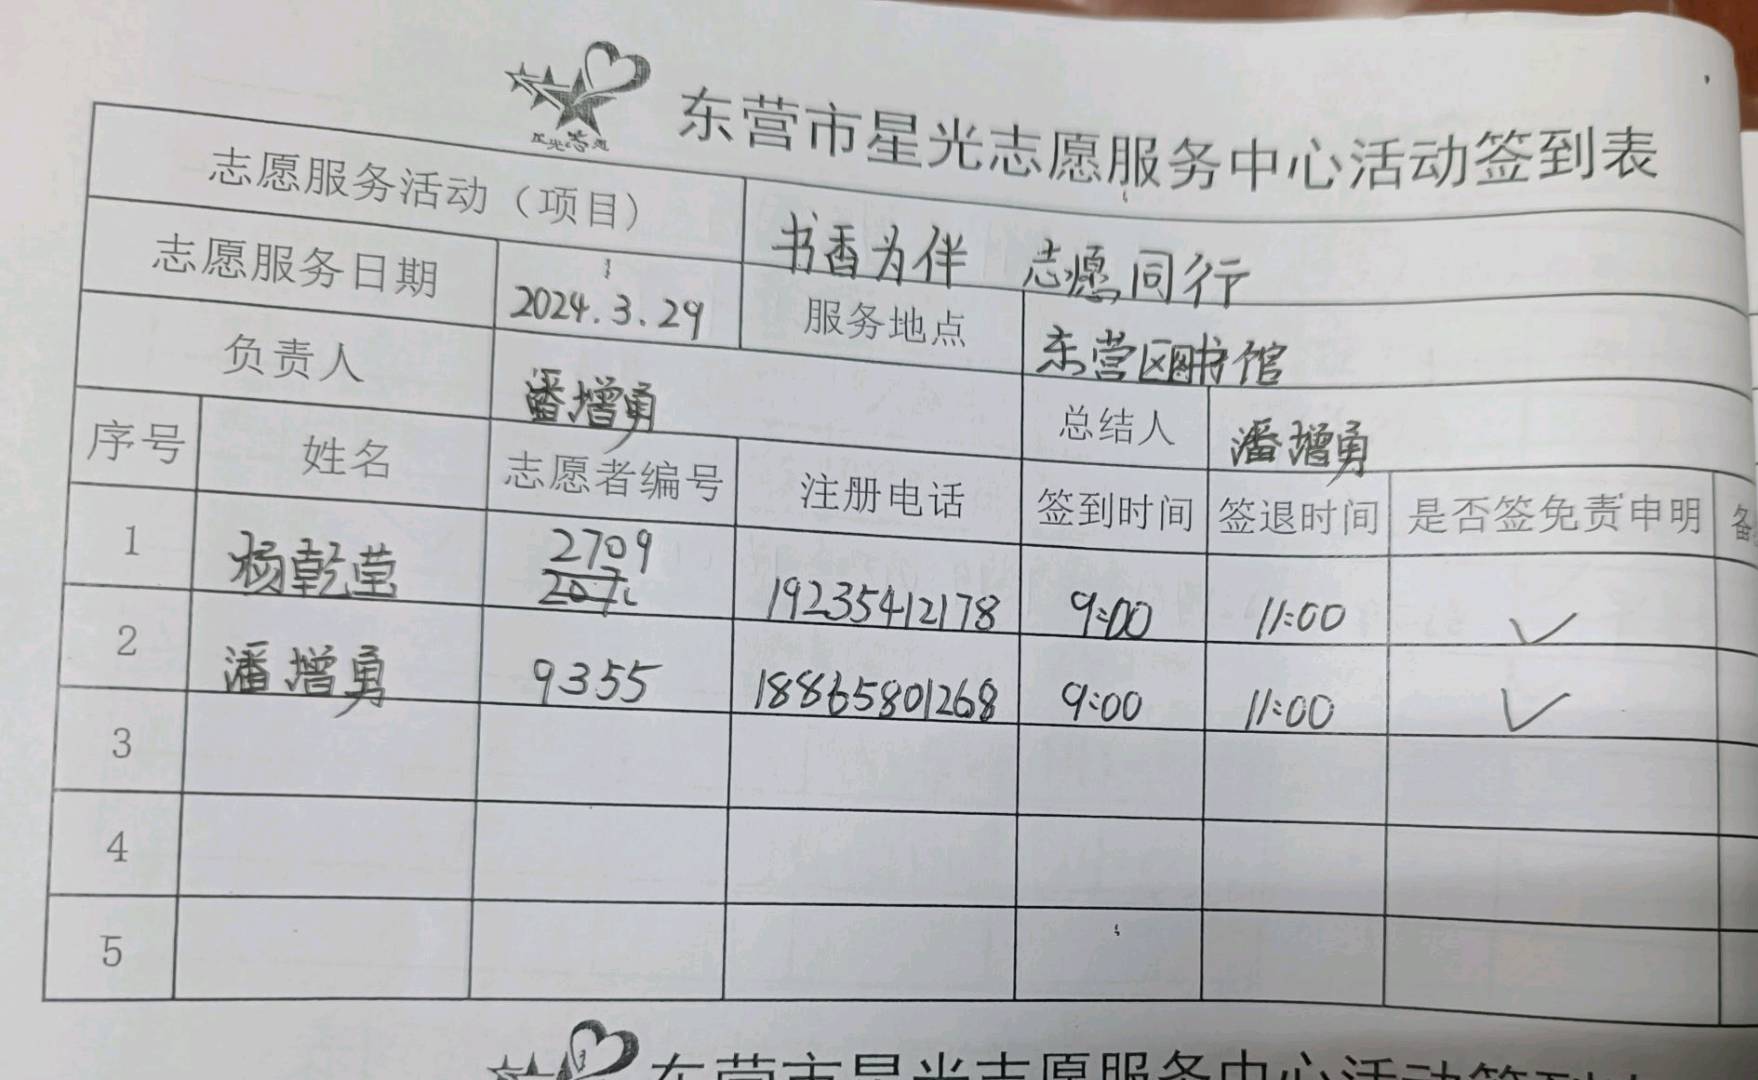 星光志愿
东营市星光志愿服务中心活动签到表
志愿服务活动（项目） 书香为伴 志愿同行
志愿服务日期 2024.3.29 服务地点 东营区图书馆
负责人 潘增勇 总结人 潘增勇
序号 姓名 志愿者编号 注册电话 签到时间 签退时间 是否签免责申明 备
1 杨乾莹 2709 19235412178 9:00 11:00 ✓
2 潘增勇 9355 18865801268 9:00 11:00 ✓
3
4
5
东营市星光志愿服务中心活动签到